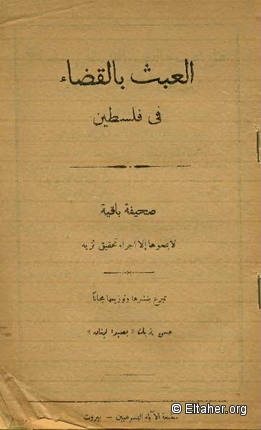 العبث بالقضاء
في فلسطين
صحيفة باقية
لا يمحوها إلا اجراء تحقيق نزيه
تبرع بنشرها وتوزيعها مجاناً
عيسى بندك «بصيدا لبنان»
مطبعة الآباء اليسوعيين - بيروت
© Eltaher.org